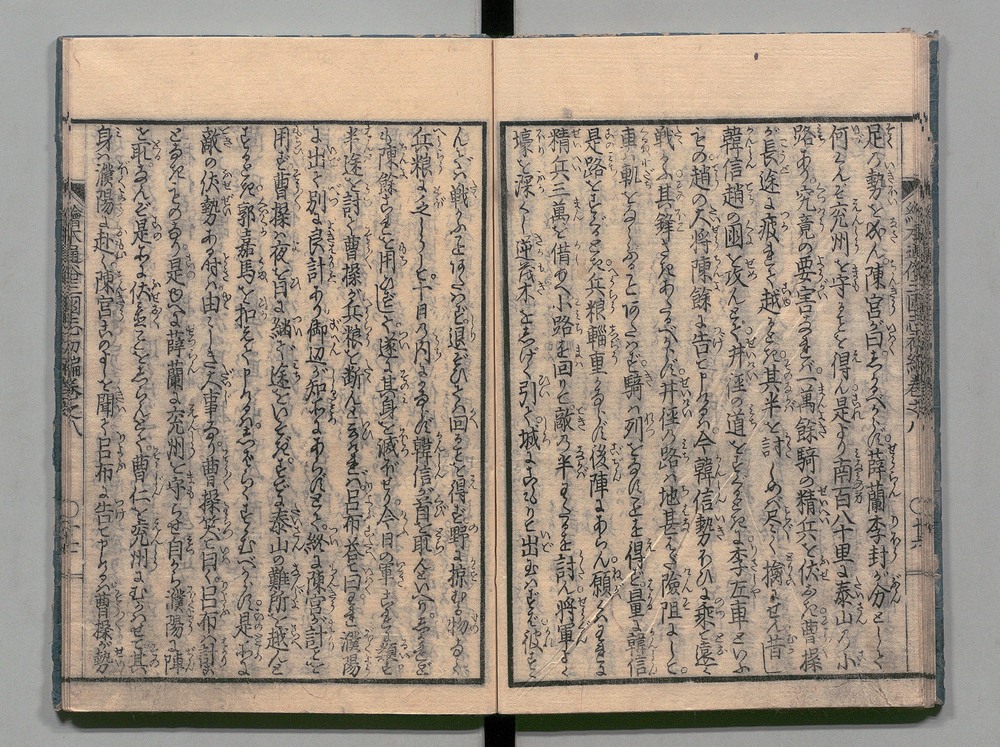 繪本通俗三國志初編巻之八
足の勢とめん陳宮が曰くしかるべからず薛蘭李封が分として
何ぞよく兗州を守ることを得ん是より南百八十里に泰山の小
路あり究竟の要害なれば一萬餘騎の精兵を伏なば曹操
が長途に疲れて越るとき其半を討しめば尽く擒にせん昔し
韓信趙の國を攻んとて井徑の道をすぐるときに李左車といふ
もの趙の大将陳餘に告て申けるは今韓信勢ひに乗じ遠く
戦ふ其鋒さきあたるべからず井徑の路は地甚だ險阻にして
車は軌をならぶることあたはず騎は列をなすことを得ず量るに韓信
是路をすぐるとき兵粮輜重かならず後陣にあらん願くはわれに
精兵三萬を借たまへ小路を回りて敵の半すぐるを討ん将軍は
壕を深くし逆茂木をしげく引て城にこもりて出玉はずば彼すゝ
んでは戦ふことあたはず退ひては回ることを得ず野に掠むる物なく
兵粮に乏しうして十日の内にかならず韓信が首を取んといへりしかるを
陳餘これを用ひずして遂に其身を滅ぼせり今日の軍これに類す
半途を討て曹操が兵粮を断んと云ければ呂布答て曰くわれ濮陽
に出て別に良計あり御辺が知所にあらずとて終に陳宮が計ごとを
用ず曹操は夜を日に継て途をいそぎすでに泰山の難所を越んと
するとき郭嘉馬を扣へて申けるはしばらくすゝむべからず是にかならず
敵の伏勢あらば由ゝしき大事なり曹操笑て曰く呂布は計ご
となきものなり是ゆへに薛蘭に兗州を守らせ自から濮陽に陣
を取なんど是に伏兵をしらんとて曹仁を兗州にむかはせ其
身は濮陽に赴く陳宮このよしを聞て呂布に告て申けるは曹操が勢
繪本通俗三國志初編巻之八